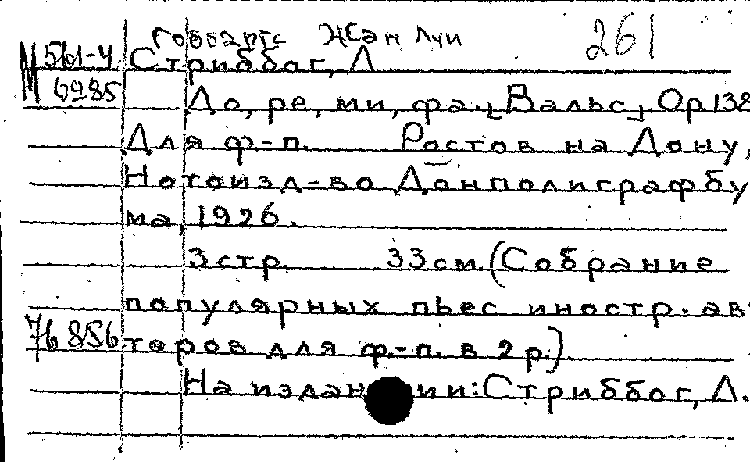 Гоббартс Жан Луи 261
М 561-4 Стриббог, Л
М 6985 До, ре, ми, фа. [Вальс] Ор 138
Для ф-п. Ростов на Дону,
Нотоизд-во Донполиграфбу
ма, 1926.
3 стр. 33 см. (Собрание
популярных пьес иностр. ав-
76 856 торов для ф-п. в 2 р.)
На издании: Стриббог, Л.